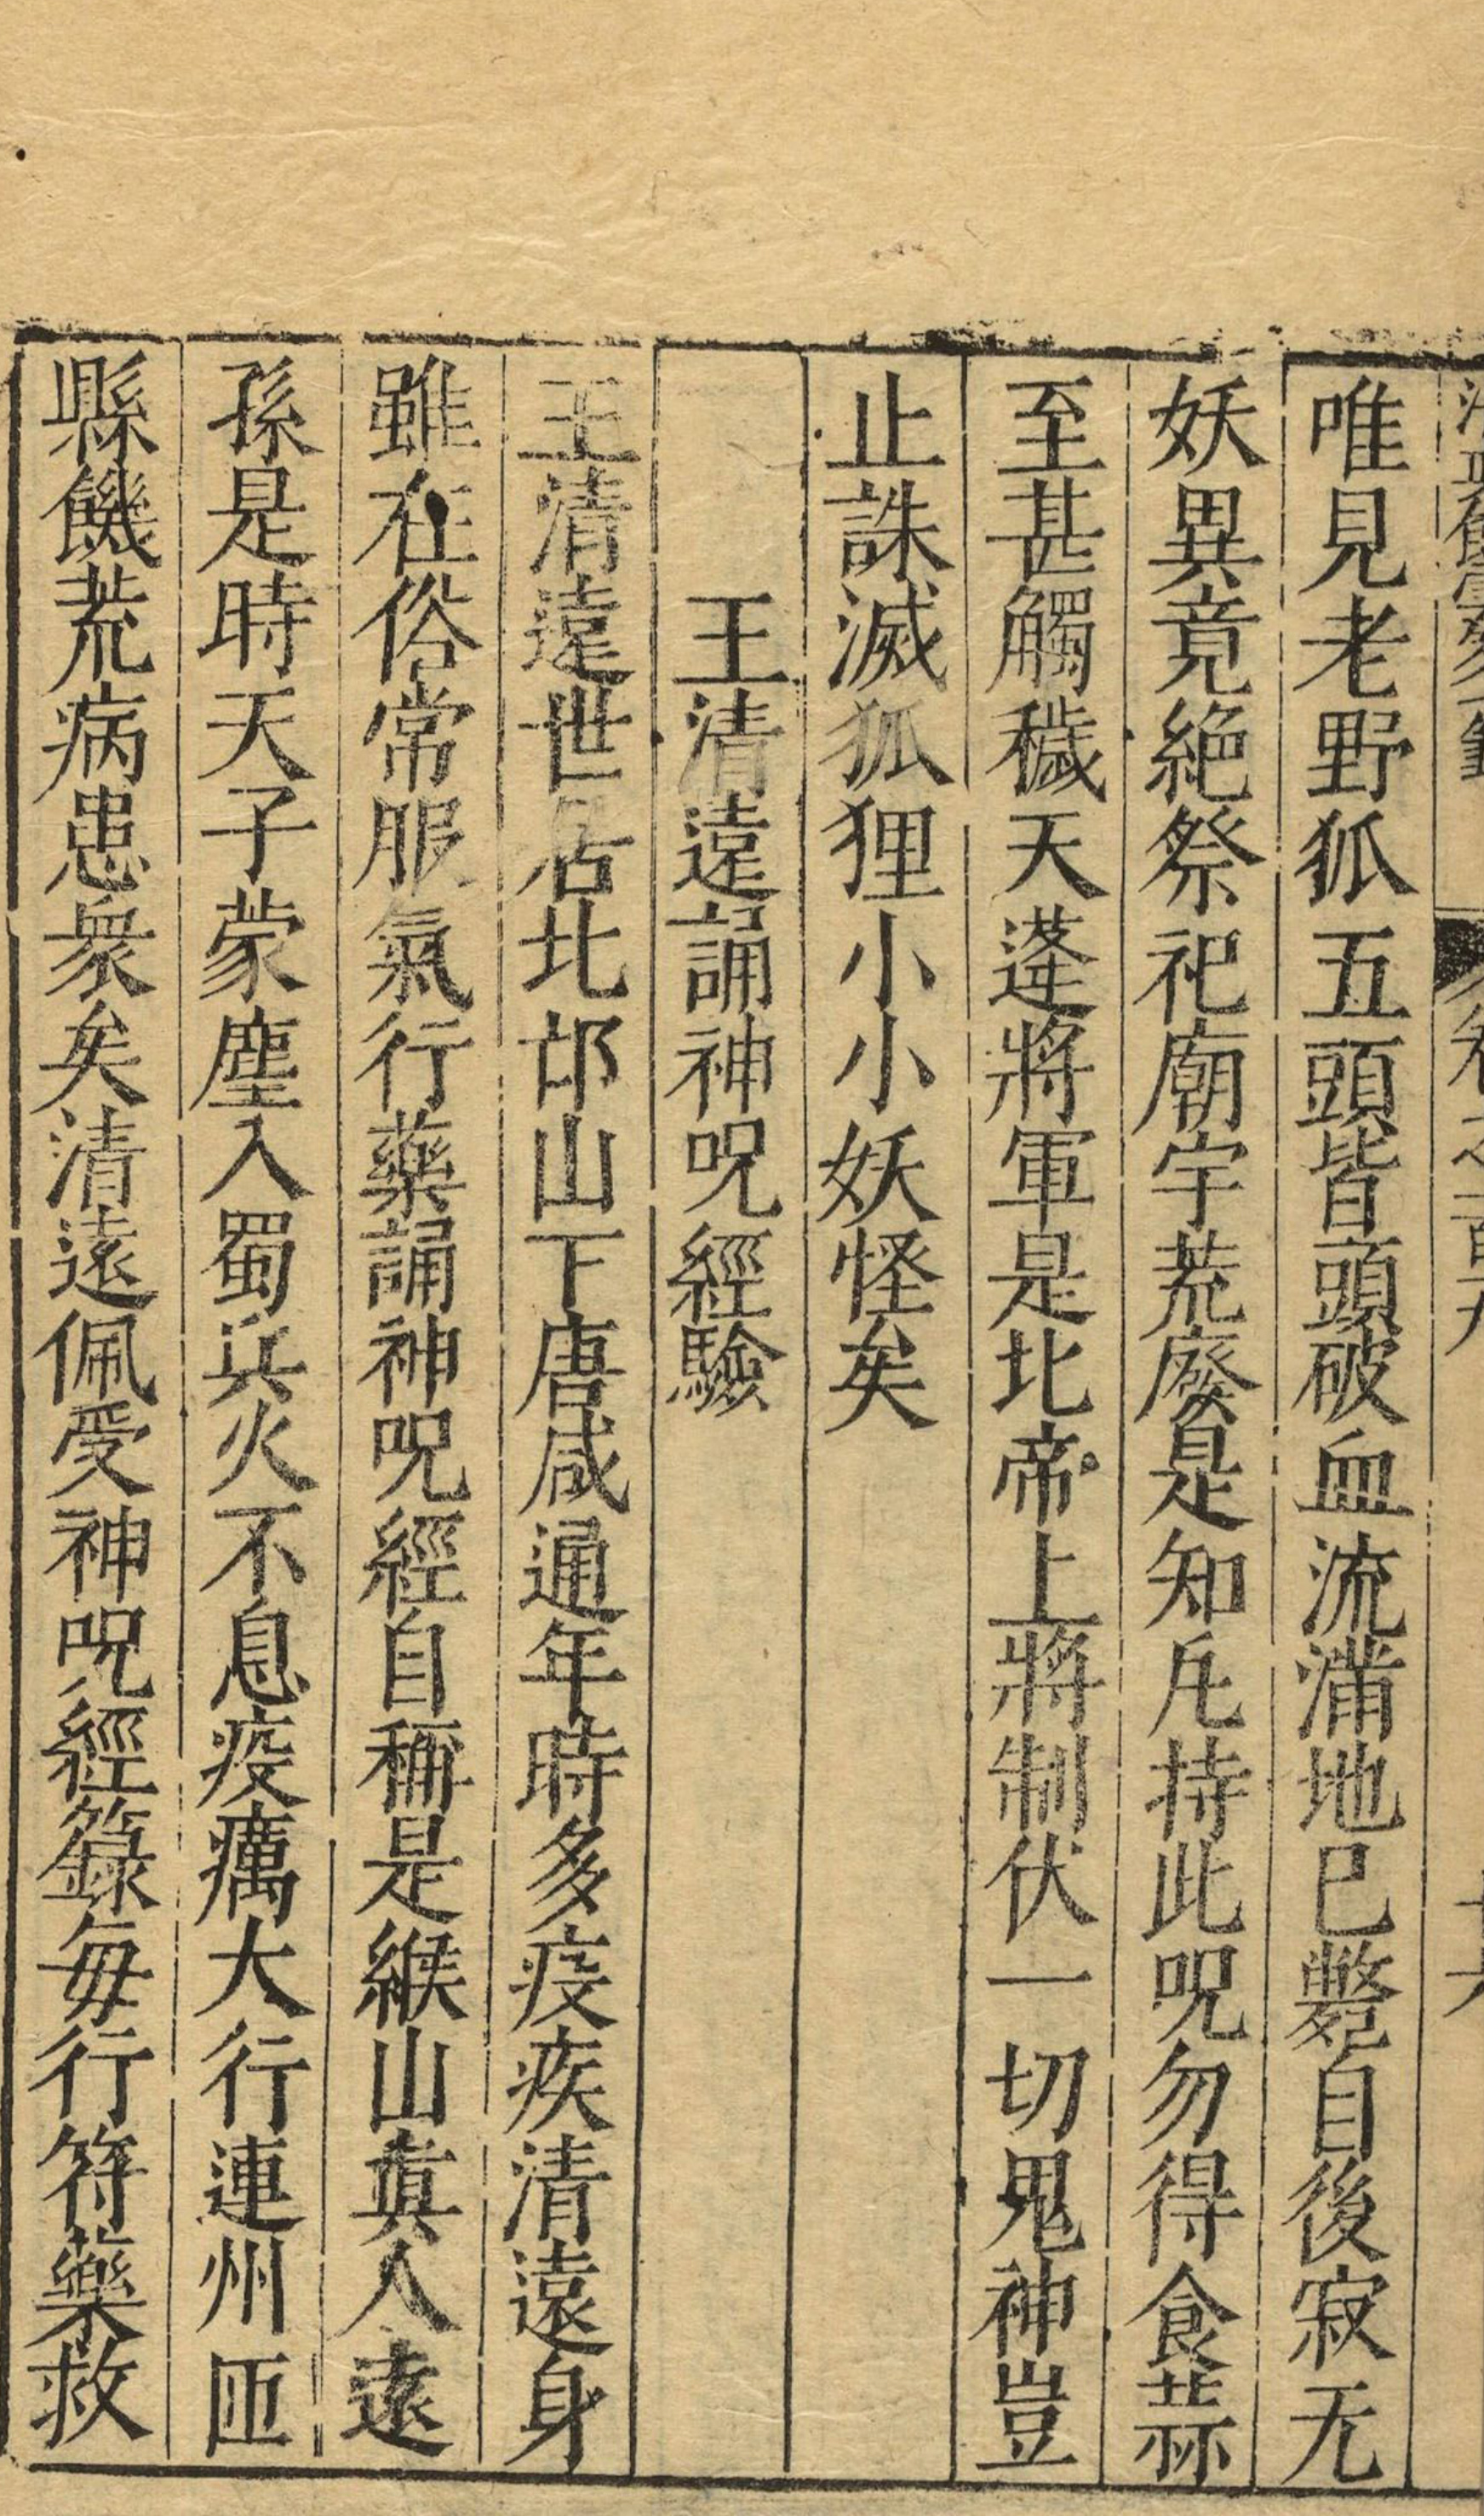 唯見老野狐五頭皆頭破血流滿地已斃自後寂无
妖異竟絕祭祀廟宇荒廢是知凡持此呪勿得食蒜
至甚觸穢天蓬將軍是北帝上將制伏一切鬼神豈
止誅滅狐狸小小妖怪矣
王清遠誦神呪經驗
王清遠世居北邙山下唐咸通年時多疫疾清遠身
雖在俗常服氣行藥誦神呪經自稱是緱山眞人遠
孫是時天子蒙塵入蜀兵火不息疫癘大行連州匝
縣饑荒病患衆矣清遠佩受神呪經籙每行符藥救